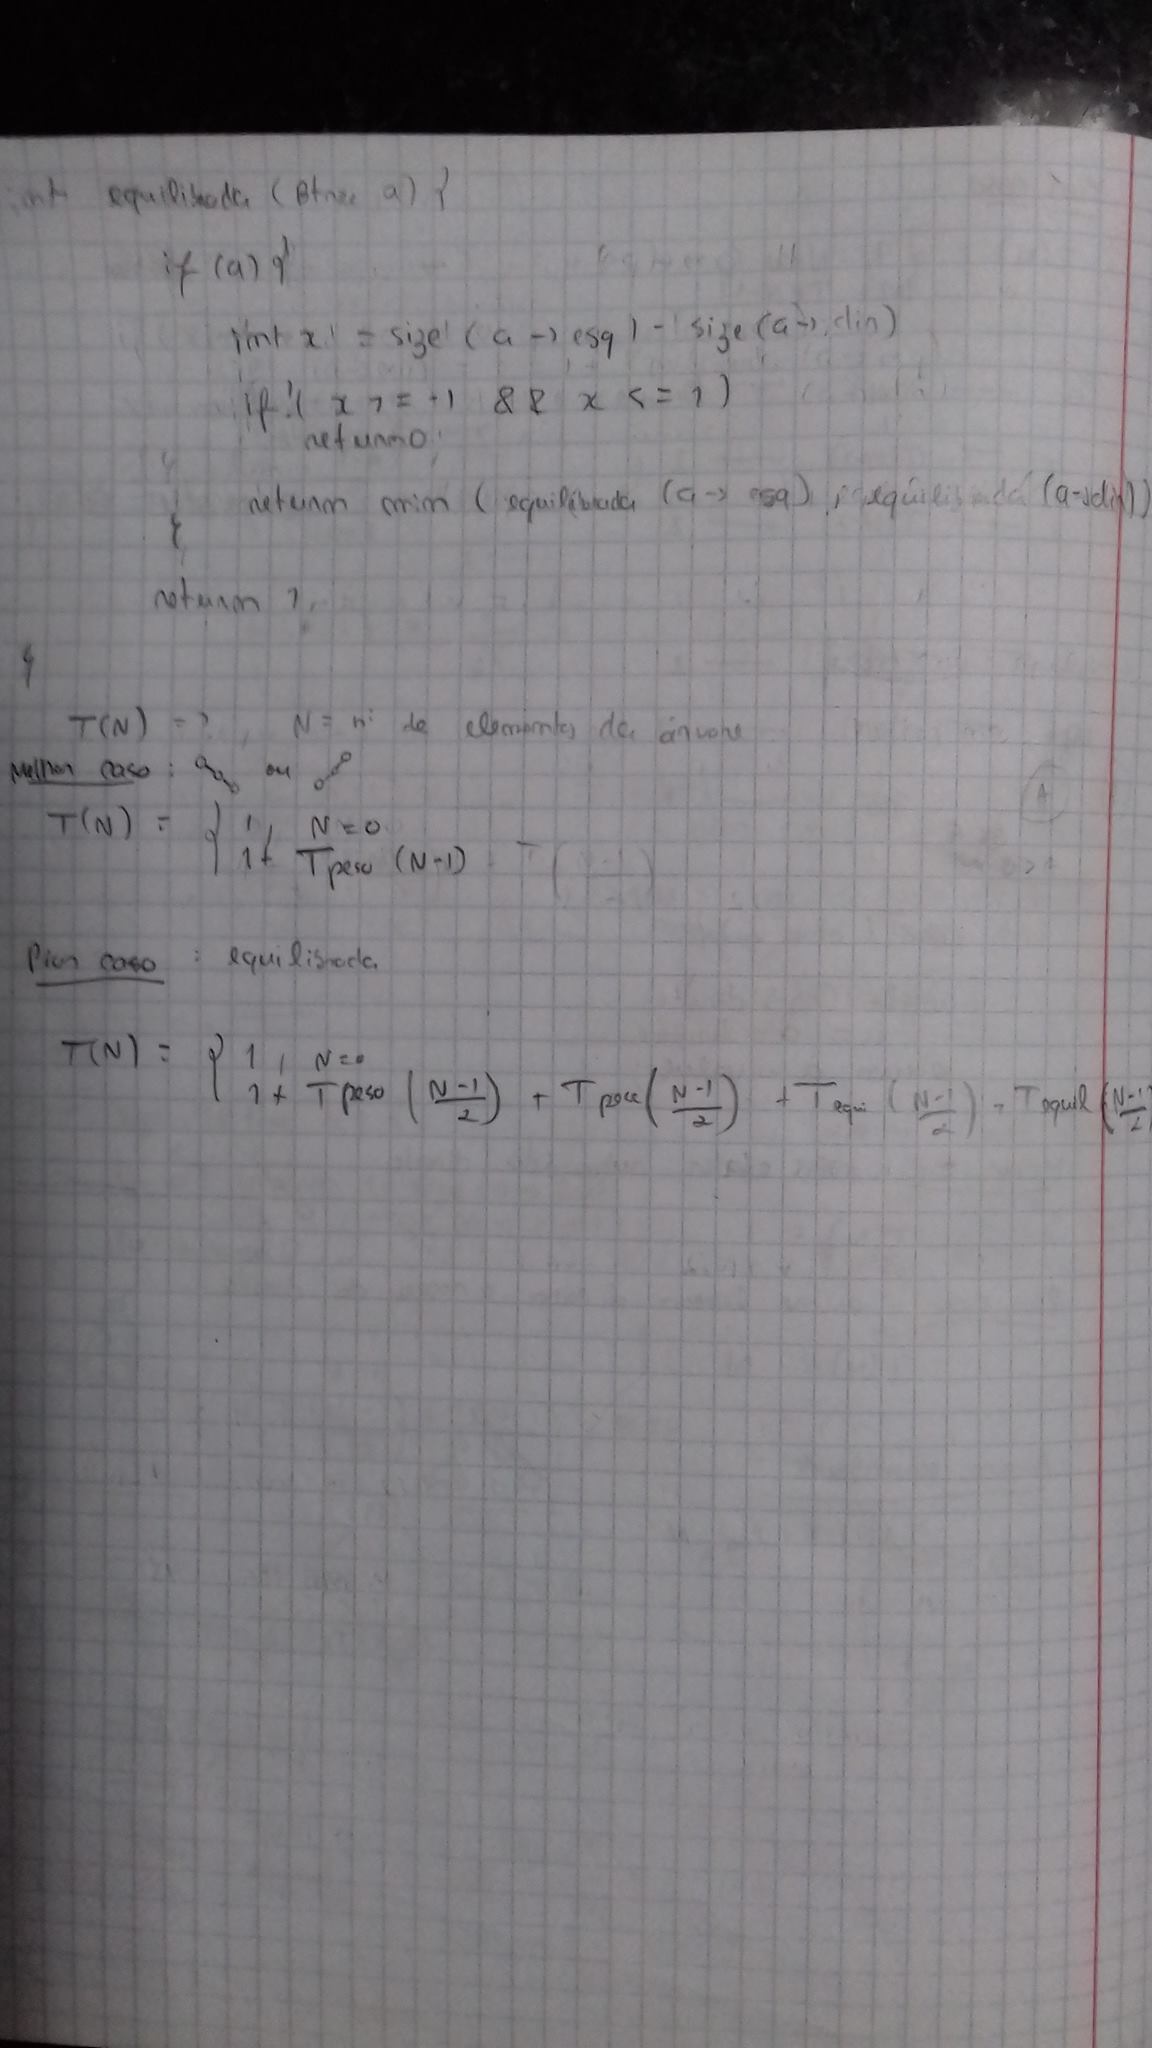 int equilibrada (Btree a) {
if (a) {
int x = size (a -> esq) - size (a -> dir)
if !( x >= -1 && x <= 1)
return 0;
return min (equilibrada (a -> esq), equilibrada (a->dir))
}
return 1;
}
T(N) = ?, N = nº de elementos da árvore
Melhor caso : ou
T(N) = { 1, N = 0
1 + Tpeso (N-1)
Pior caso : equilibrada
T(N) = { 1, N=0
1 + Tpeso (N-1/2) + Tpeso (N-1/2) + Tequi (N-1/2) + Tequil (N-1/2